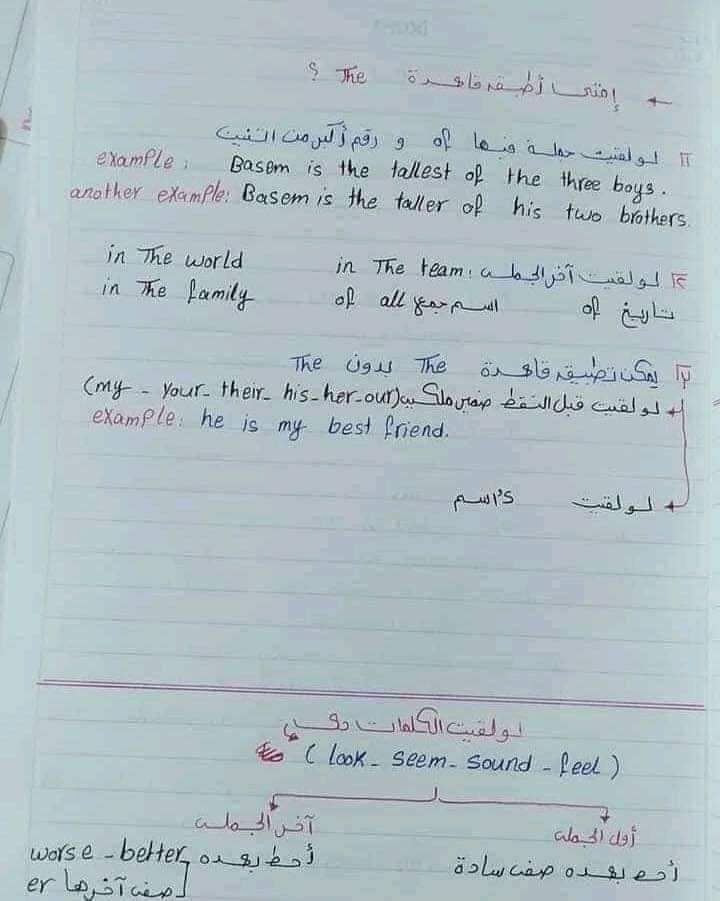 ← إمتى أطبق قاعدة The ؟
1 لو لقيت جملة فيها of و رقم أكبر من اتنين
example : Basem is the tallest of the three boys.
another example: Basem is the taller of his two brothers.
2 لو لقيت آخر الجملة : in The team in The world
تاريخ of اسم جمع of all in The family
3 يمكن تطبيق قاعدة The بدون The
← لو لقيت قبل النقط ضمير ملكية (my - your - their - his - her - our)
example: he is my best friend.
← لو لقيت اسم 's
لو لقيت الكلمات دي
( look - seem - sound - feel )
أول الجملة آخر الجملة
أحط بعده صفة سادة أحط بعده worse - better
صفة آخرها er